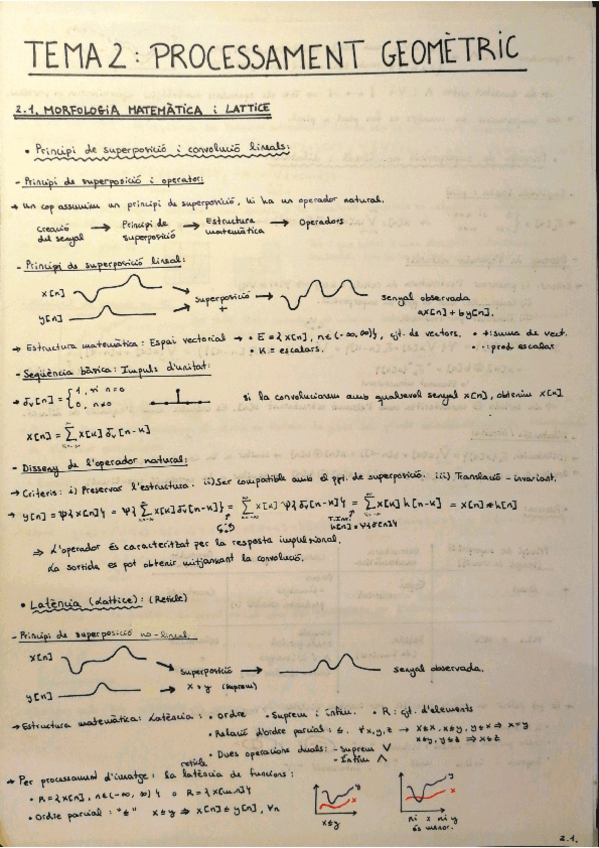 TEMA 2: PROCESSAMENT GEOMÈTRIC
2.1. MORFOLOGIA MATEMÀTICA i LATTICE
• Principi de superposició i convolució lineals:
- Principi de superposició i operator:
→ Un cop assumim un principi de superposició, hi ha un operador natural.
Creació del senyal → Principi de superposició → Estructura matemàtica → Operadors
- Principi de superposició lineal:
x[n]
y[n]
superposició
+
senyal observada
ax[n] + by[n].
→ Estructura matemàtica: Espai vectorial → • E = {x[n], n∈(-∞,∞)}, cjt. de vectors. • +: suma de vect.
• K = escalars. • ·: prod. escalar
- Seqüència bàsica: Impuls d'unitat:
1, si n=0
0, n≠0
si la convolucionem amb qualsevol senyal x[n], obtenim x[n]
x[n] = Σ x[k] δ [n-k]
- Disseny de l'operador natural:
→ Criteris: i) Preservar l'estructura. ii) Ser compatible amb el ppi. de superposició. iii) Translació-invariant.
→ y[n] = Ψ{x[n]} = Ψ{Σ x[k] δ[n-k]} = Σ x[k] Ψ{δ[n-k]} = Σ x[k] h[n-k] = x[n] * h[n]
⇒ L'operador és caracteritzat per la resposta impulsional.
La sortida es pot obtenir mitjançant la convolució.
• Latència (Lattice): (Reticle)
- Principi de superposició no-lineal
x[n]
y[n]
superposició
x ≥ y (suprem)
senyal observada.
→ Estructura matemàtica: Latència: • Ordre • Suprem i ínfim. • R: cjt. d'elements
• Relació d'ordre parcial: ≤. ∀x,y,z → x≤x, x≤y, y≤x ⇒ x=y
x≤y, y≤z ⇒ x≤z
• Dues operacions duals: - Suprem ∨
- Ínfim ∧
reticle
→ Per processament d'imatge: la latència de funcions:
• R = {x[n], n∈(-∞,∞)} o R = {x[m,n]}
• Ordre parcial: "≤" x≤y ⇒ x[n] ≤ y[n], ∀n
y
x
x≤y
y
x
ni x ni y
és menor.
2.1.